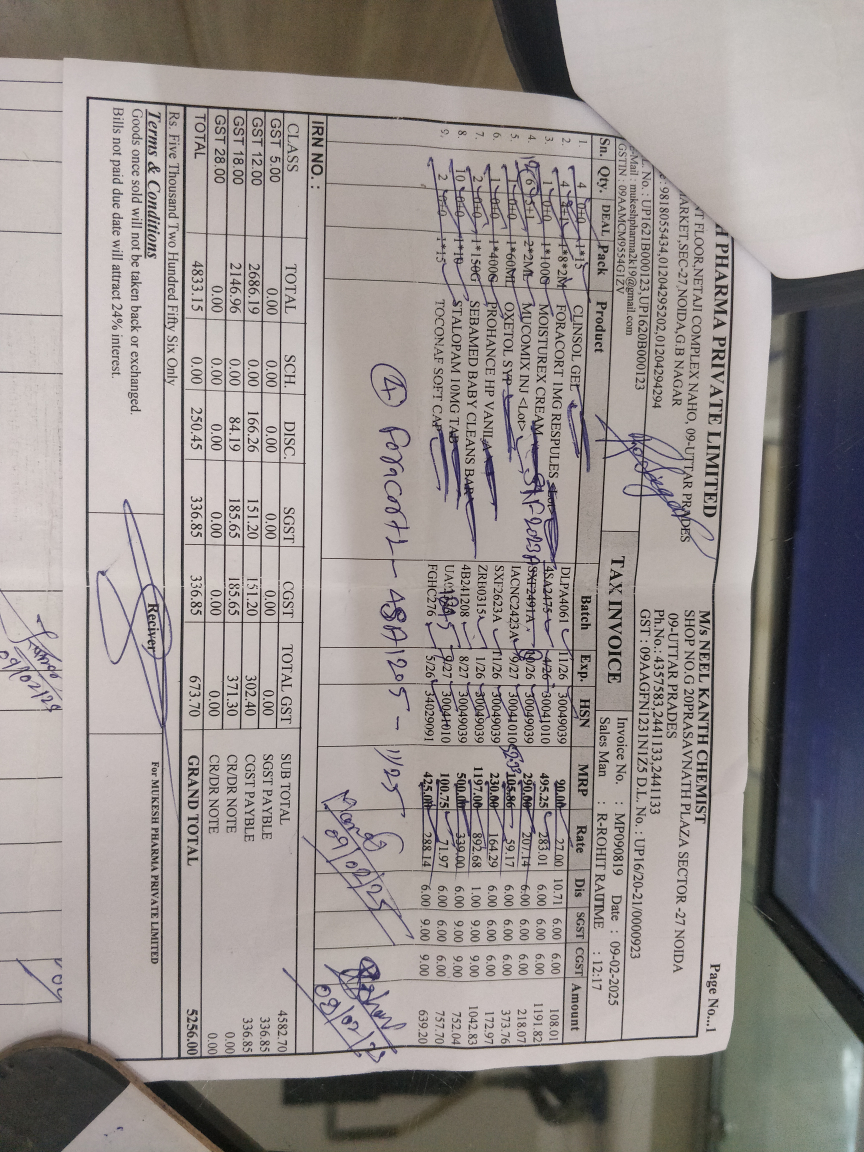 H PHARMA PRIVATE LIMITED
T FLOOR,NETAJI COMPLEX NAHO, 09-UTTAR PRADES
MARKET,SEC-27,NOIDA,G.B NAGAR
:9818055434,01204295202,01204294294
. No. : UP1621B000123,UP1620B000123
-Mail : mukeshpharma2k19@gmail.com
GSTIN : 09AAMCM9554G1ZV
Page No...1
M/s NEEL KANTH CHEMIST
SHOP NO.G 20PRASAVNATH PLAZA SECTOR -27 NOIDA
09-UTTAR PRADES
Ph.No.: 4357583,2441133,2441133
GST : 09AAGFN1231N1Z5 D.L. No. : UP16/20-21/0000923
TAX INVOICE
Invoice No. : MP090819 Date : 09-02-2025
Sales Man : R-ROHIT RAUTIME : 12:17
Sn. Qty. DEAL Pack Product Batch Exp. HSN MRP Rate Dis SGST CGST Amount
1. 4 0+0 1*15 CLINSOL GEL DLPA4061 11/26 30049039 90.00 27.00 10.71 6.00 6.00 108.01
2. 4 4+1 1*8*2M FORACORT 1MG RESPULES 4SA2475 4/26 30041010 495.25 283.01 6.00 6.00 6.00 1191.82
3. 1 0+0 1*100G MOISTUREX CREAM 30049039 290.00 207.14 6.00 6.00 6.00 218.07
4. 6 5+1 2*2ML MUCOMIX INJ <Lot> IACNC2423A 9/27 30041010 105.86 59.17 6.00 6.00 6.00 373.76
5. 1 0+0 1*60ML OXETOL SYP SXF2623A 11/26 30049039 230.00 164.29 6.00 6.00 6.00 172.97
6. 1 0+0 1*400G PROHANCE HP VANILA ZRB0315A 1/26 30049039 1197.00 892.68 1.00 9.00 9.00 1042.83
7. 2 0+0 1*150G SEBAMED BABY CLEANS BAR 4B241208 8/27 30049039 500.00 339.00 6.00 9.00 9.00 752.04
8. 10 0+0 1*10 STALOPAM 10MG TAB 9/27 30041010 100.75 71.97 6.00 6.00 6.00 757.70
9. 2 0+0 1*15 TOCONAF SOFT CAP FGHC276 5/26 34029091 425.00 288.14 6.00 9.00 9.00 639.20
④ Foracort 1 - 4SA1205 - 11/25
09/02/25
09/02/25
IRN NO. :
CLASS TOTAL SCH. DISC. SGST CGST TOTAL GST
GST 5.00 0.00 0.00 0.00 0.00 0.00 0.00
GST 12.00 2686.19 0.00 166.26 151.20 151.20 302.40
GST 18.00 2146.96 0.00 84.19 185.65 185.65 371.30
GST 28.00 0.00 0.00 0.00 0.00 0.00 0.00
TOTAL 4833.15 0.00 250.45 336.85 336.85 673.70
SUB TOTAL 4582.70
SGST PAYBLE 336.85
CGST PAYBLE 336.85
CR/DR NOTE 0.00
CR/DR NOTE 0.00
Rs. Five Thousand Two Hundred Fifty Six Only
GRAND TOTAL 5256.00
Terms & Conditions
Goods once sold will not be taken back or exchanged.
Bills not paid due date will attract 24% interest.
Reciver
For MUKESH PHARMA PRIVATE LIMITED
09/02/25